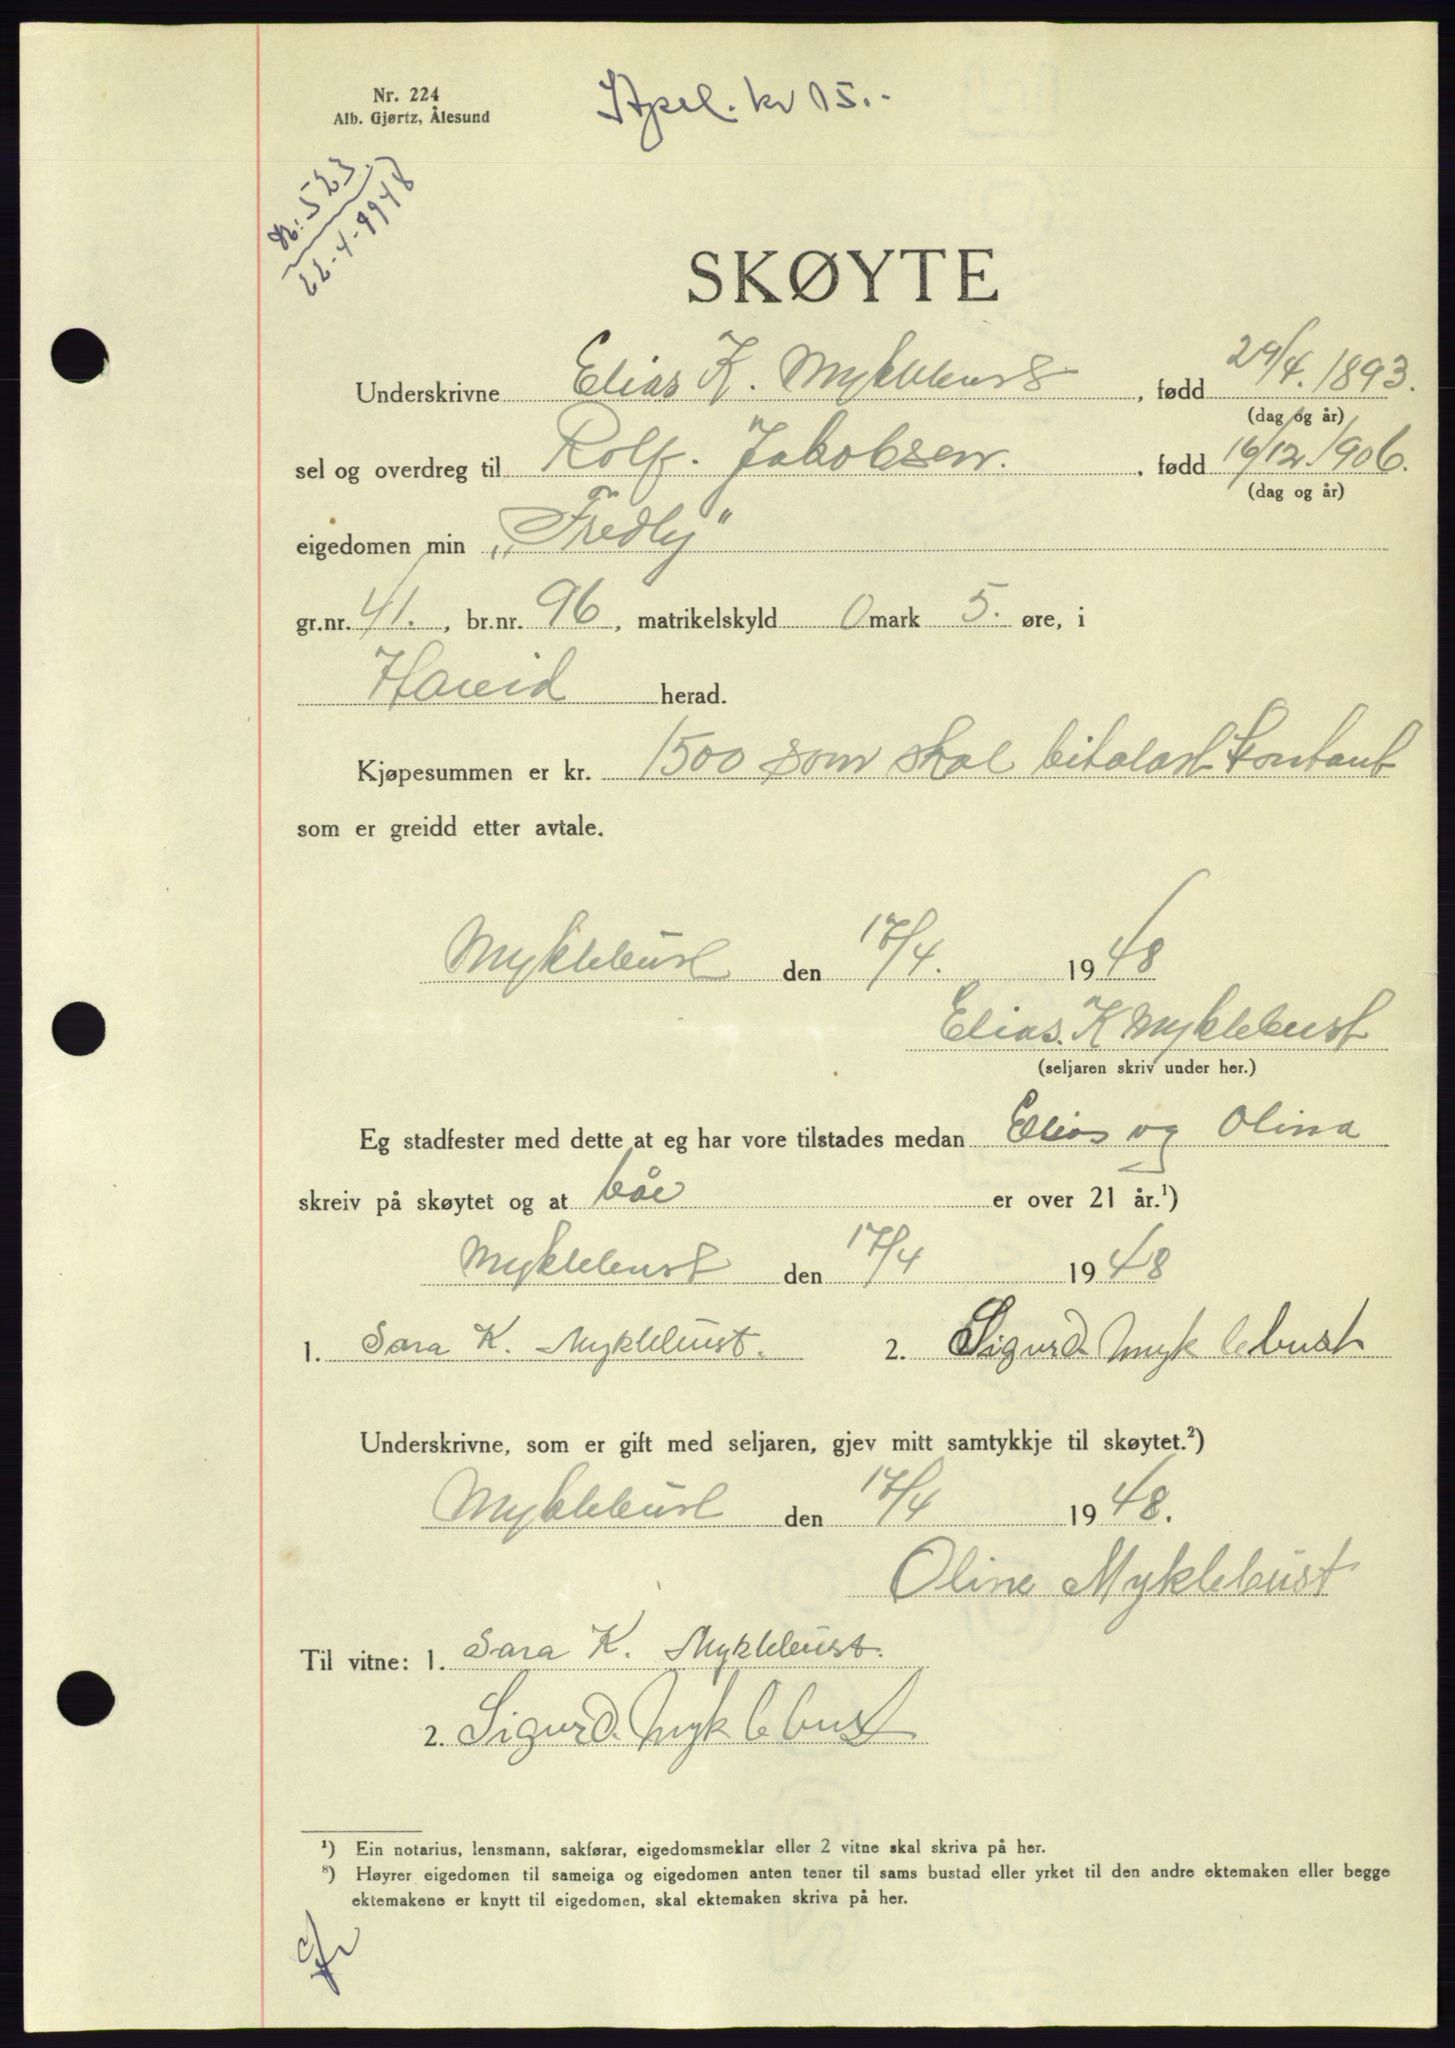 Nr. 224
Alb. Gjørtz, Ålesund
Stpel. kr 15.-
Nr: 523.
22-4-1948
SKØYTE
Underskrivne Elias K. Myklebust, fødd 29/4. 1893.
(dag og år)
sel og overdreg til Rolf. Jakobsen., fødd 16/12. 1906.
(dag og år)
eigedomen min „Fredly"
gr.nr. 41., br.nr. 96, matrikelskyld 0 mark 5. øre, i
Hareid herad.
Kjøpesummen er kr. 1500 som skal bitalast kontant
som er greidd etter avtale.
Myklebust den 17/4. 1948
Elias. K Myklebust
(seljaren skriv under her.)
Eg stadfester med dette at eg har vore tilstades medan Elias og Olina
skreiv på skøytet og at båe er over 21 år.¹)
Myklebust den 17/4 1948
1. Sara K. Myklebust. 2. Sigurd Myklebust
Underskrivne, som er gift med seljaren, gjev mitt samtykkje til skøytet.²)
Myklebust den 17/4 1948.
Oline Myklebust
Til vitne: 1. Sara K. Myklebust.
2. Sigurd Myklebust
¹) Ein notarius, lensmann, sakførar, eigedomsmeklar eller 2 vitne skal skriva på her.
⁸) Høyrer eigedomen til sameiga og eigedomen anten tener til sams bustad eller yrket til den andre ektemaken eller begge
ektemakene er knytt til eigedomen, skal ektemaken skriva på her.